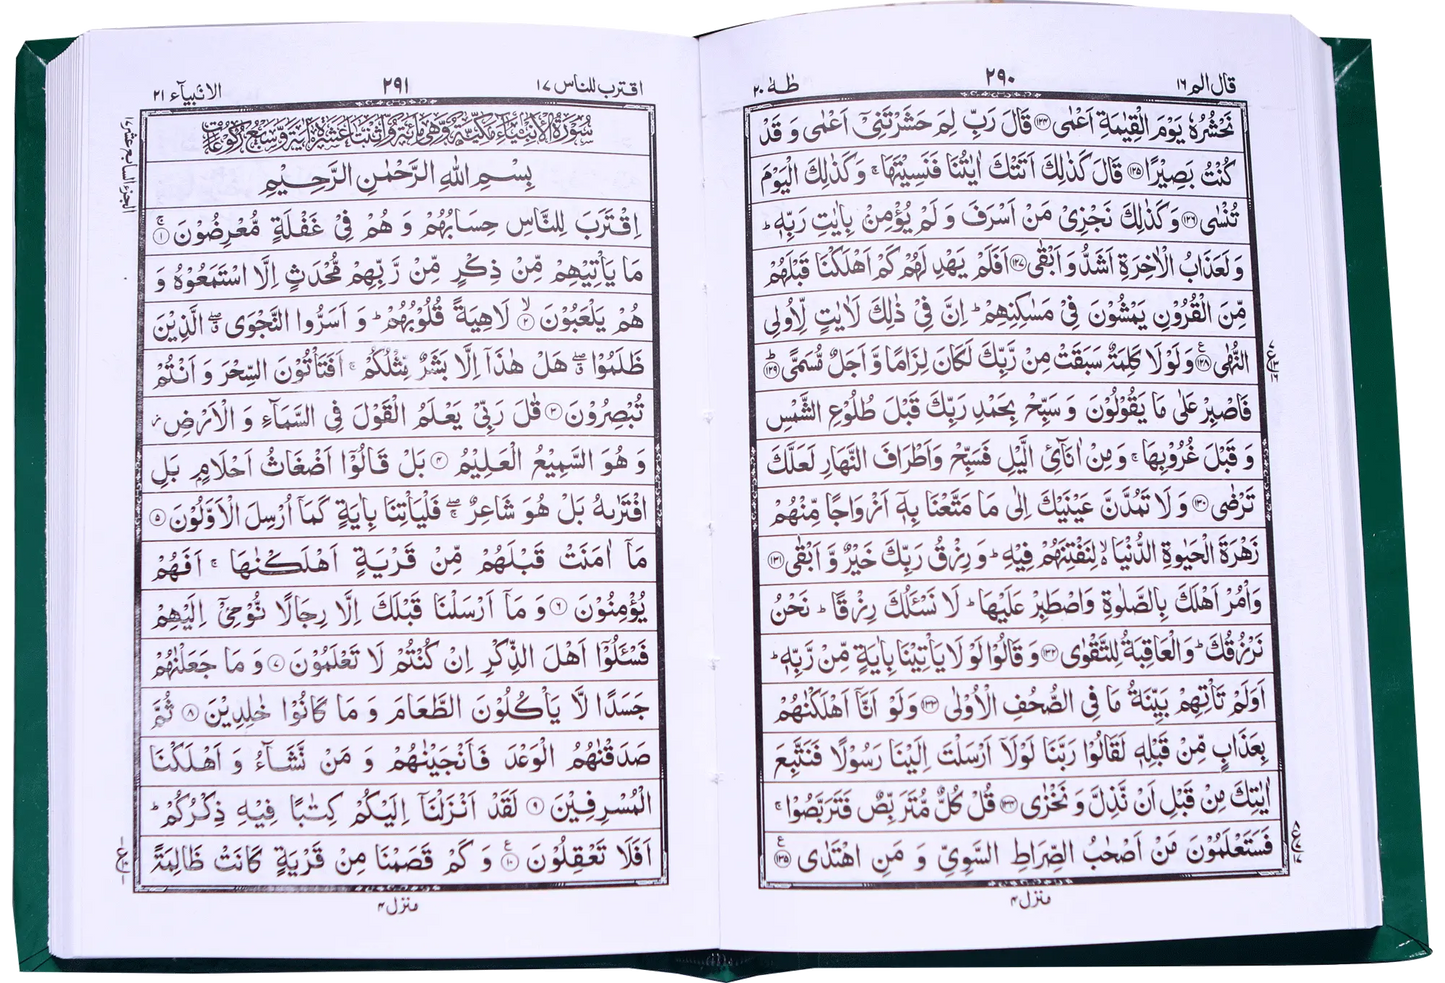 قال الم ١٦
٢٩٠
طٰهٰ ٢٠
نَحْشُرُهٗ يَوْمَ الْقِيٰمَةِ اَعْمٰى ﴿١٢٤﴾ قَالَ رَبِّ لِمَ حَشَرْتَنِىْۤ اَعْمٰى وَ قَدْ
كُنْتُ بَصِيْرًا ﴿١٢٥﴾ قَالَ كَذٰلِكَ اَتَتْكَ اٰيٰتُنَا فَنَسِيْتَهَا ۚ وَكَذٰلِكَ الْيَوْمَ
تُنْسٰى ﴿١٢٦﴾ وَ كَذٰلِكَ نَجْزِىْ مَنْ اَسْرَفَ وَ لَمْ يُؤْمِنْۢ بِاٰيٰتِ رَبِّهٖ ؕ
وَ لَعَذَابُ الْاٰخِرَةِ اَشَدُّ وَ اَبْقٰى ﴿١٢٧﴾ اَفَلَمْ يَهْدِ لَهُمْ كَمْ اَهْلَكْنَا قَبْلَهُمْ
مِّنَ الْقُرُوْنِ يَمْشُوْنَ فِىْ مَسٰكِنِهِمْ ؕ اِنَّ فِىْ ذٰلِكَ لَاٰيٰتٍ لِّاُولِى
النُّهٰى ﴿١٢٨﴾ وَ لَوْ لَا كَلِمَةٌ سَبَقَتْ مِنْ رَّبِّكَ لَكَانَ لِزَامًا وَّ اَجَلٌ مُّسَمًّى ؕ ﴿١٢٩﴾
فَاصْبِرْ عَلٰى مَا يَقُوْلُوْنَ وَ سَبِّحْ بِحَمْدِ رَبِّكَ قَبْلَ طُلُوْعِ الشَّمْسِ
وَ قَبْلَ غُرُوْبِهَا ۚ وَ مِنْ اٰنَآئِ الَّيْلِ فَسَبِّحْ وَ اَطْرَافَ النَّهَارِ لَعَلَّكَ
تَرْضٰى ﴿١٣٠﴾ وَ لَا تَمُدَّنَّ عَيْنَيْكَ اِلٰى مَا مَتَّعْنَا بِهٖۤ اَزْوَاجًا مِّنْهُمْ
زَهْرَةَ الْحَيٰوةِ الدُّنْيَا ۙ لِنَفْتِنَهُمْ فِيْهِ ؕ وَ رِزْقُ رَبِّكَ خَيْرٌ وَّ اَبْقٰى ﴿١٣١﴾
وَاْمُرْ اَهْلَكَ بِالصَّلٰوةِ وَاصْطَبِرْ عَلَيْهَا ؕ لَا نَسْـَٔلُكَ رِزْقًا ؕ نَحْنُ
نَرْزُقُكَ ؕ وَالْعَاقِبَةُ لِلتَّقْوٰى ﴿١٣٢﴾ وَ قَالُوْا لَوْ لَا يَاْتِيْنَا بِاٰيَةٍ مِّنْ رَّبِّهٖ ؕ
اَوَلَمْ تَاْتِهِمْ بَيِّنَةُ مَا فِى الصُّحُفِ الْاُوْلٰى ﴿١٣٣﴾ وَلَوْ اَنَّاۤ اَهْلَكْنٰهُمْ
بِعَذَابٍ مِّنْ قَبْلِهٖ لَقَالُوْا رَبَّنَا لَوْ لَاۤ اَرْسَلْتَ اِلَيْنَا رَسُوْلًا فَنَتَّبِعَ
اٰيٰتِكَ مِنْ قَبْلِ اَنْ نَّذِلَّ وَ نَخْزٰى ﴿١٣٤﴾ قُلْ كُلٌّ مُّتَرَبِّصٌ فَتَرَبَّصُوْا ۚ
فَسَتَعْلَمُوْنَ مَنْ اَصْحٰبُ الصِّرَاطِ السَّوِىِّ وَ مَنِ اهْتَدٰى ﴿١٣٥﴾
منزل ۴
اقترب للناس ١٧
٢٩١
الانبيآء ٢١
الجزء السابع عشر ١٧
سُوْرَةُ الْاَنْبِيَآءِ مَكِّيَّةٌ وَّهِىَ مِائَةٌ وَّاثْنَتَا عَشْرَةَ اٰيَةً وَّسَبْعُ رُكُوْعَاتٍ
بِسْمِ اللهِ الرَّحْمٰنِ الرَّحِيْمِ
اِقْتَرَبَ لِلنَّاسِ حِسَابُهُمْ وَ هُمْ فِىْ غَفْلَةٍ مُّعْرِضُوْنَ ۚ ﴿١﴾
مَا يَاْتِيْهِمْ مِّنْ ذِكْرٍ مِّنْ رَّبِّهِمْ مُّحْدَثٍ اِلَّا اسْتَمَعُوْهُ وَ
هُمْ يَلْعَبُوْنَ ۙ ﴿٢﴾ لَاهِيَةً قُلُوْبُهُمْ ؕ وَ اَسَرُّوا النَّجْوَى ۖۗ الَّذِيْنَ
ظَلَمُوْا ۖۗ هَلْ هٰذَاۤ اِلَّا بَشَرٌ مِّثْلُكُمْ ۚ اَفَتَاْتُوْنَ السِّحْرَ وَ اَنْتُمْ
تُبْصِرُوْنَ ﴿٣﴾ قٰلَ رَبِّىْ يَعْلَمُ الْقَوْلَ فِى السَّمَآءِ وَ الْاَرْضِ ؗ
وَ هُوَ السَّمِيْعُ الْعَلِيْمُ ﴿٤﴾ بَلْ قَالُوْۤا اَضْغَاثُ اَحْلَامٍۭ بَلِ
افْتَرٰىهُ بَلْ هُوَ شَاعِرٌ ۖۚ فَلْيَاْتِنَا بِاٰيَةٍ كَمَاۤ اُرْسِلَ الْاَوَّلُوْنَ ﴿٥﴾
مَاۤ اٰمَنَتْ قَبْلَهُمْ مِّنْ قَرْيَةٍ اَهْلَكْنٰهَا ۚ اَفَهُمْ
يُؤْمِنُوْنَ ﴿٦﴾ وَ مَاۤ اَرْسَلْنَا قَبْلَكَ اِلَّا رِجَالًا نُّوْحِىْۤ اِلَيْهِمْ
فَسْـَٔلُوْۤا اَهْلَ الذِّكْرِ اِنْ كُنْتُمْ لَا تَعْلَمُوْنَ ﴿٧﴾ وَ مَا جَعَلْنٰهُمْ
جَسَدًا لَّا يَاْكُلُوْنَ الطَّعَامَ وَ مَا كَانُوْا خٰلِدِيْنَ ﴿٨﴾ ثُمَّ
صَدَقْنٰهُمُ الْوَعْدَ فَاَنْجَيْنٰهُمْ وَ مَنْ نَّشَآءُ وَ اَهْلَكْنَا
الْمُسْرِفِيْنَ ﴿٩﴾ لَقَدْ اَنْزَلْنَاۤ اِلَيْكُمْ كِتٰبًا فِيْهِ ذِكْرُكُمْ ؕ
اَفَلَا تَعْقِلُوْنَ ﴿١٠﴾ وَ كَمْ قَصَمْنَا مِنْ قَرْيَةٍ كَانَتْ ظَالِمَةً
منزل ۴